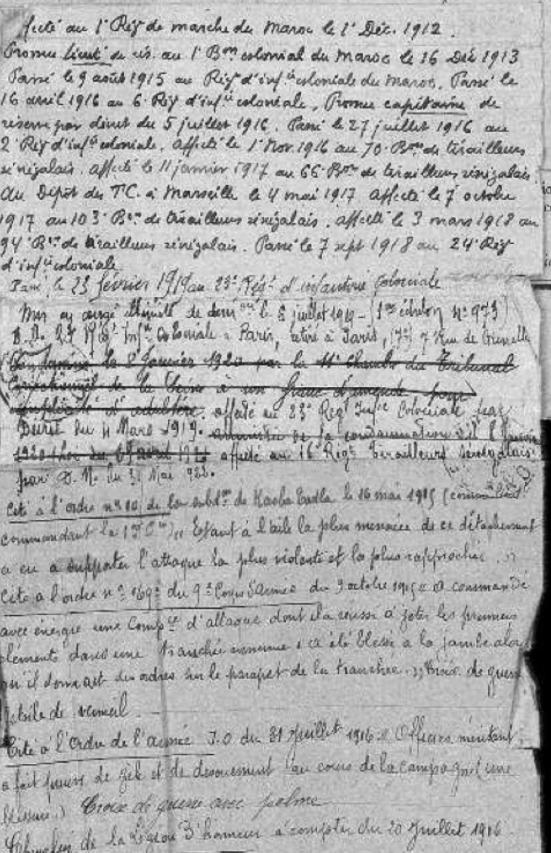 fecté au 1er Régt de marche du Maroc le 1er Déc. 1912.
Promu lieutt de rés. au 1er Bon colonial du Maroc le 16 Déc 1913
Passé le 9 août 1915 au Régt d'infie coloniale du Maroc. Passé le
16 avril 1916 au 6e Régt d'infie coloniale. Promu capitaine de
réserve par décret du 5 juillet 1916. Passé le 27 juillet 1916 au
2e Régt d'infie coloniale. Affecté le 1er Nov. 1916 au 70e Bon de tirailleurs
sénégalais. affecté le 11 janvier 1917 au 66e Bon de tirailleurs sénégalais
au Dépôt des T.C. à Marseille le 4 mai 1917 Affecté le 7 octobre
1917 au 103e Bon de tirailleurs sénégalais. Affecté le 3 mars 1918 au
94e Bon de tirailleurs sénégalais. Passé le 7 sept 1918 au 24e Régt
d'infie coloniale
Passé le 23 février 1919 au 23e Régt d'infanterie coloniale
Mis en congé illimité de démon le 8 juillet 1919 - (1er échelon No 973)
Infie Coloniale à Paris, retiré à Paris, (7e) 7 Rue de Grenelle
Condamné le 8 Janvier 1920 par la 11e Chambre du Tribunal
Correctionnel de la Seine à un franc d'amende pour
complicité d'adultère. affecté au 23e Régt Infie Coloniale par
Décret du 4 Mars 1919. amnistiée de la condamnation
affecté au 16e Régt Tirailleurs Sénégalais
par D.M. du 31 Mai 1922.
Cité à l'ordre no 10 de la subdon de Kasba Tadla le 16 mai 1915 (comme lieut
commandant la 1ère Cie) "Etant à l'aile la plus menacée de ce détachement
a eu à supporter l'attaque la plus violente et la plus rapprochée."
Cité à l'ordre no 169 du 9e Corps d'Armée du 9 octobre 1915 "a commandé
avec énergie une Compie d'attaque dont il a réussi à jeter les premiers
éléments dans une tranchée ennemie; a été blessé à la jambe alors
qu'il donnait des ordres sur le parapet de la tranchée." Croix de guerre
étoile de vermeil.
Cité à l'Ordre de l'armée J.O du 31 Juillet 1916 "Officier méritant:
a fait preuve de zèle et de dévouement au cours de la campagne (une
blessure.) Croix de guerre avec palme
Chevalier de la Légion d'honneur à compter du 20 Juillet 1916